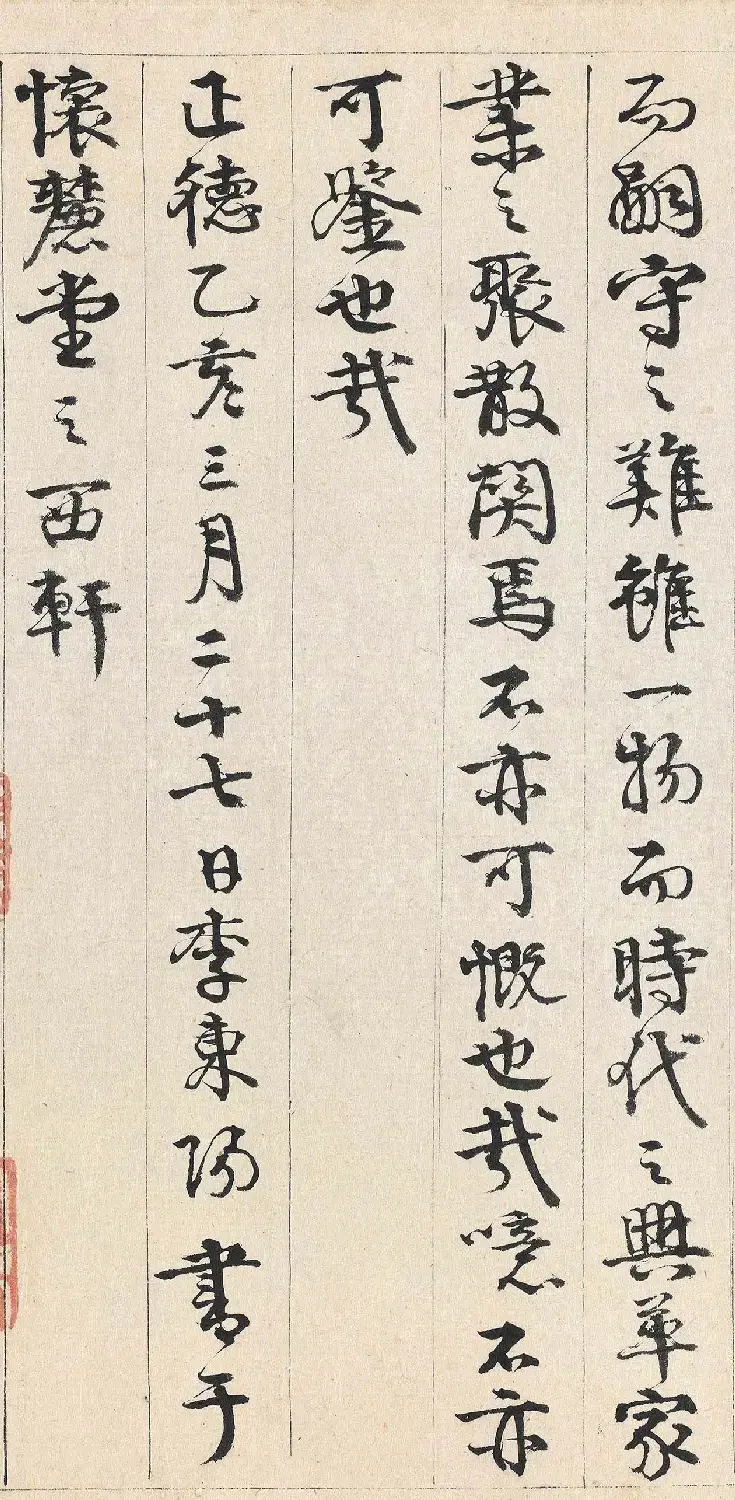 而嗣守之難雖一物而時代之興革家
業之聚散關焉不亦可慨也哉噫不亦
可鑒也哉
正德乙亥三月二十七日李東陽書于
懷麓堂之西軒